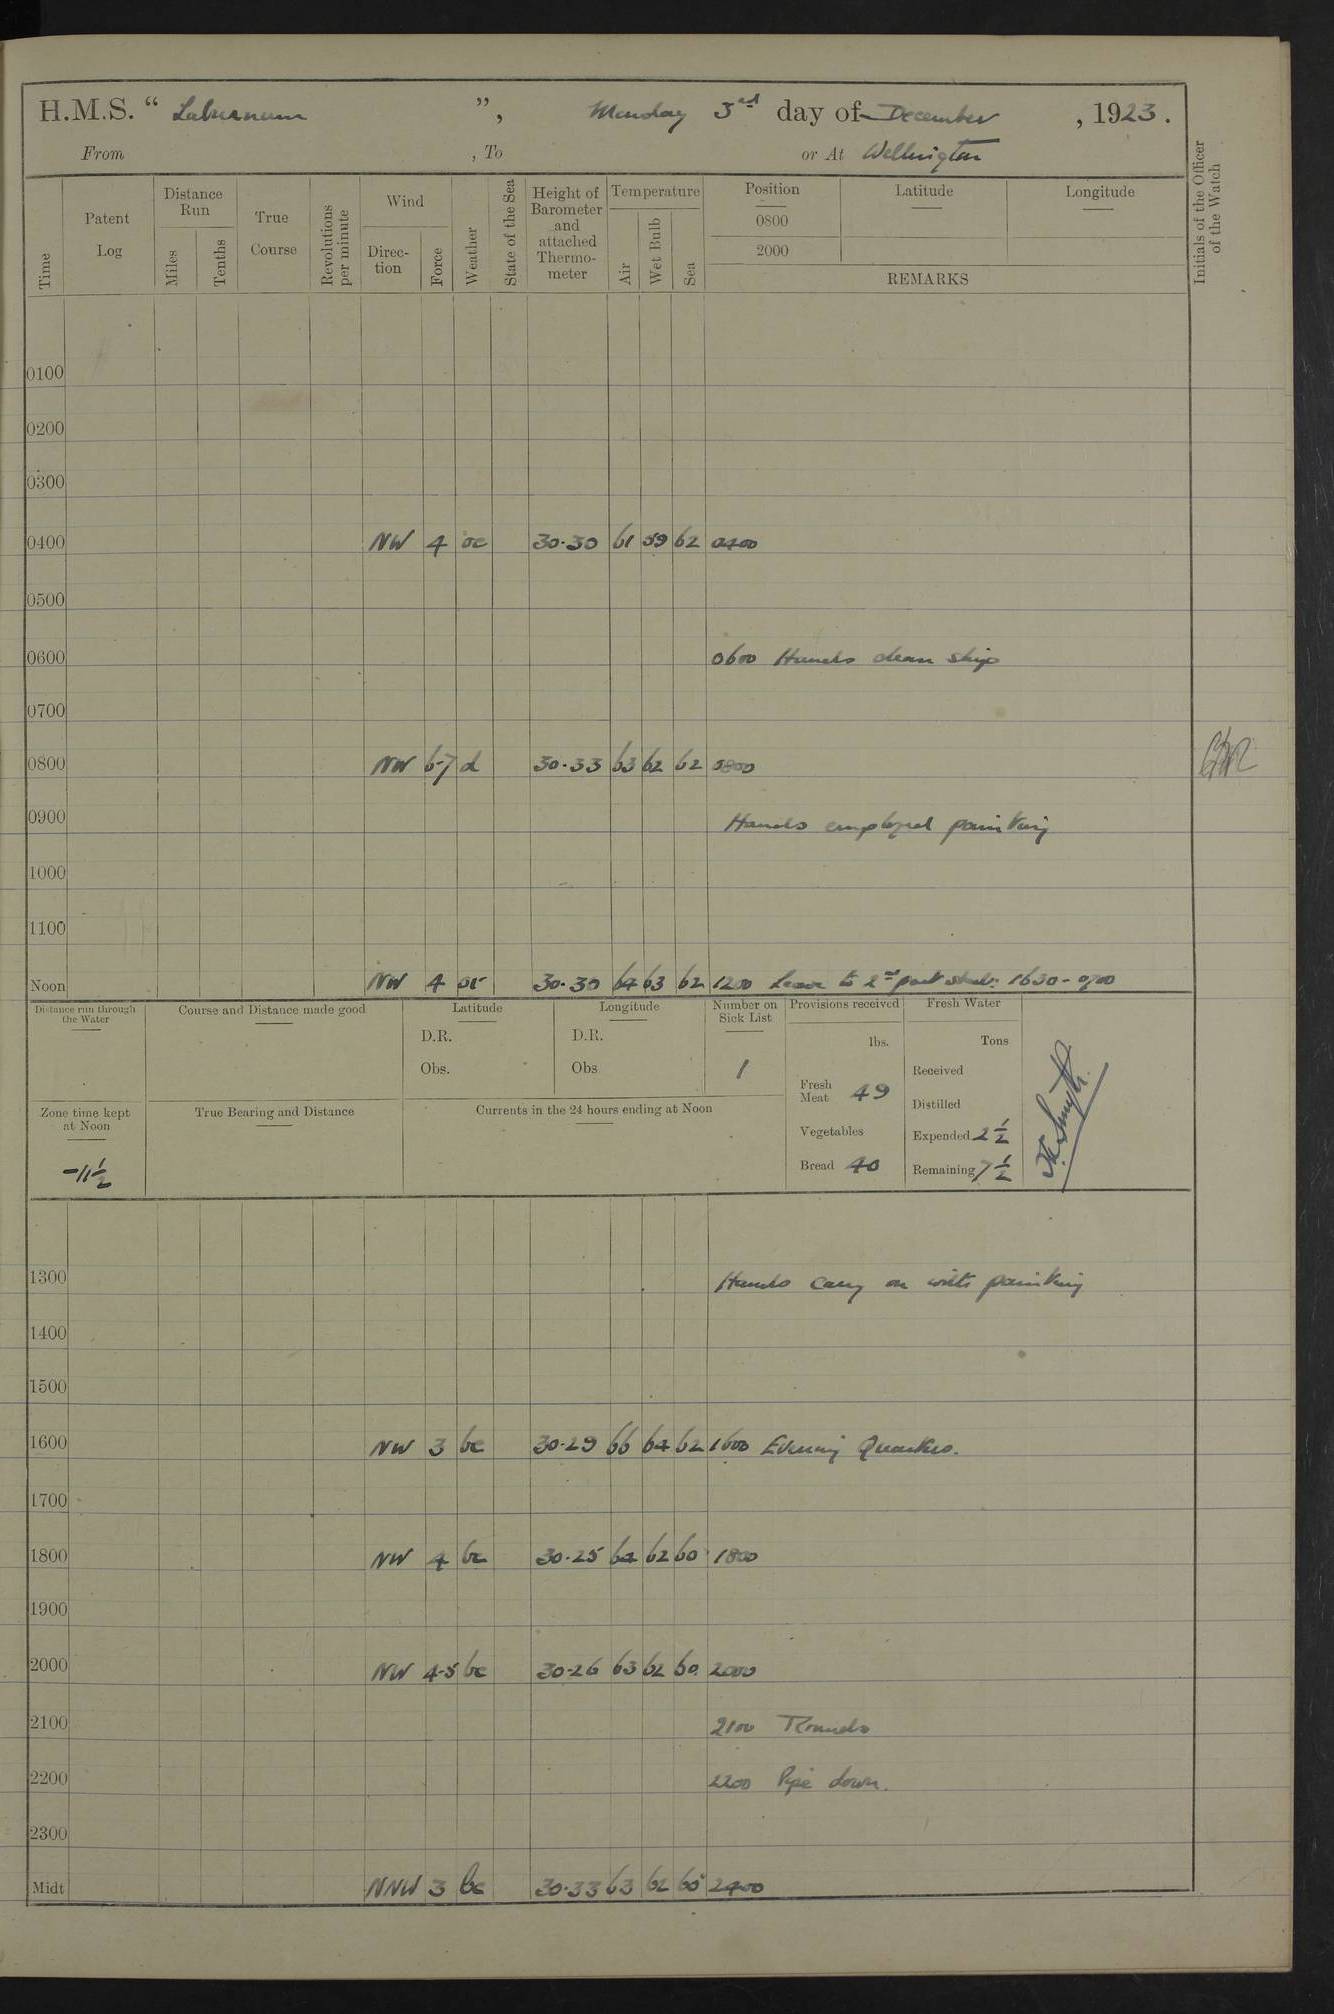 H.M.S. “ Laburnum ”, Monday 3rd day of December , 1923.
From , To or At Wellington
Time Patent Log Distance Run Miles Tenths True Course Revolutions per minute Wind Direc-tion Force Weather State of the Sea Height of Barometer and attached Thermo-meter Temperature Air Wet Bulb Sea Position 0800 2000 Latitude Longitude
REMARKS
Initials of the Officer of the Watch
0100
0200
0300
0400 NW 4 oc 30.30 61 59 62 0400
0500
0600 0600 Hands clean ship
0700
0800 NW 6-7 d 30.33 63 62 62 0800
0900 Hands employed painting
1000
1100
Noon NW 4 oc 30.30 64 63 62 1200 Leave to 2nd part 1630 - 0700
Distance run through the Water Course and Distance made good Latitude Longitude Number on Sick List Provisions received Fresh Water
D.R. D.R. lbs. Tons
Obs. Obs 1 Received
Fresh Meat 49
Distilled
Zone time kept at Noon True Bearing and Distance Currents in the 24 hours ending at Noon
Vegetables Expended 2 ½
-11 ½ Bread 40 Remaining 7 ½
1300 Hands carry on with painting
1400
1500
1600 NW 3 bc 30.29 66 64 62 1600 Evening Quarters.
1700
1800 NW 4 bc 30.25 64 62 60 1800
1900
2000 NW 4-5 bc 30.26 63 62 60 2000
2100 2100 Rounds
2200 2200 Pipe down.
2300
Midt NNW 3 bc 30.33 63 62 60 2400